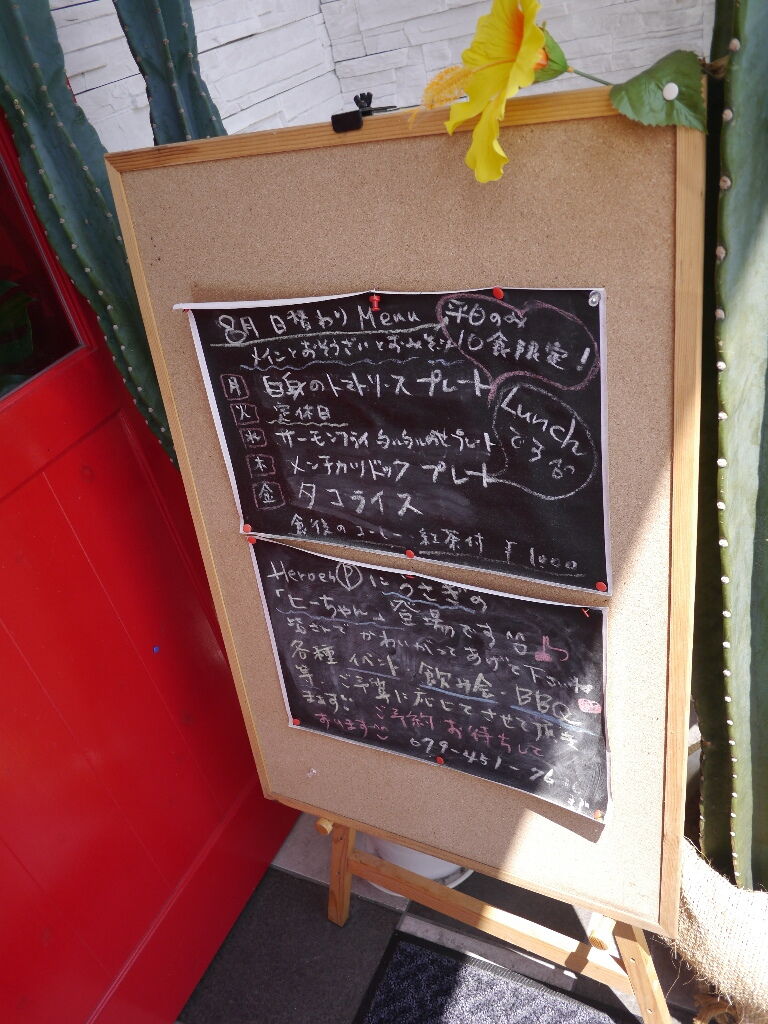 8月 日替わり Menu
平日のみ
10食限定!
メインとおそうざいとおみそ汁
月 白身のトマトソース プレート
火 定休日
Lunch
水 サーモンフライ タルタルのせプレート
木 メンチカツドック プレート
金 タコライス
食後のコーヒー・紅茶付 ¥1000
Heroes Ⓟに うさぎの
「ピーちゃん」登場です
皆さんで かわいがってあげて下さいね
各種 イベント 飲み会 BBQ
等、ご予算に応じて させて頂き
ます ご予約 お待ちして
おります
079-451-76